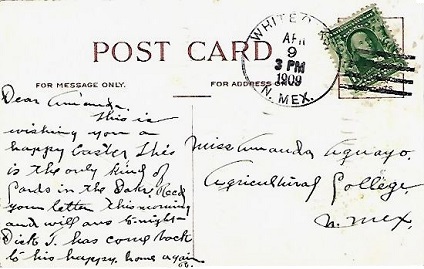 POST CARD
FOR MESSAGE ONLY.
FOR ADDRESS
WHITE
APR
9
3 PM
1909
N. MEX.
Dear Amanda.
This is
wishing you a
happy Easter This
is the only kind of
Cards in the
your letter this morning
and will ans to-night
Dick J. has come back
to his happy home again
Miss Amanda Aguayo.
Agricultural College
N. Mex.